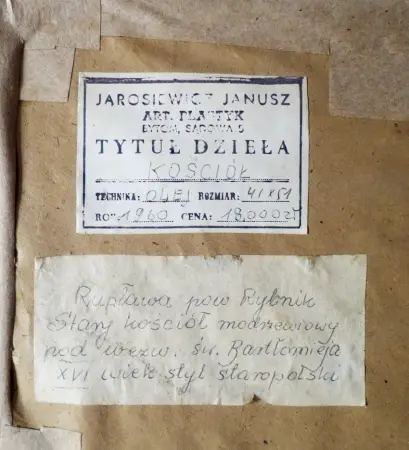 JAROSIEWICZ JANUSZ
ART. PLASTYK
BYTOM, SĄDOWA 5
TYTUŁ DZIEŁA
KOŚCIÓŁ
TECHNIKA: OLEJ ROZMIAR: 41X51
ROK 1960 CENA: 18.000 zł
Rupława pow Rybnik
Stary kościół modrzewiowy
pod wezw. św. Bartłomieja
XVI wiek styl staropolski